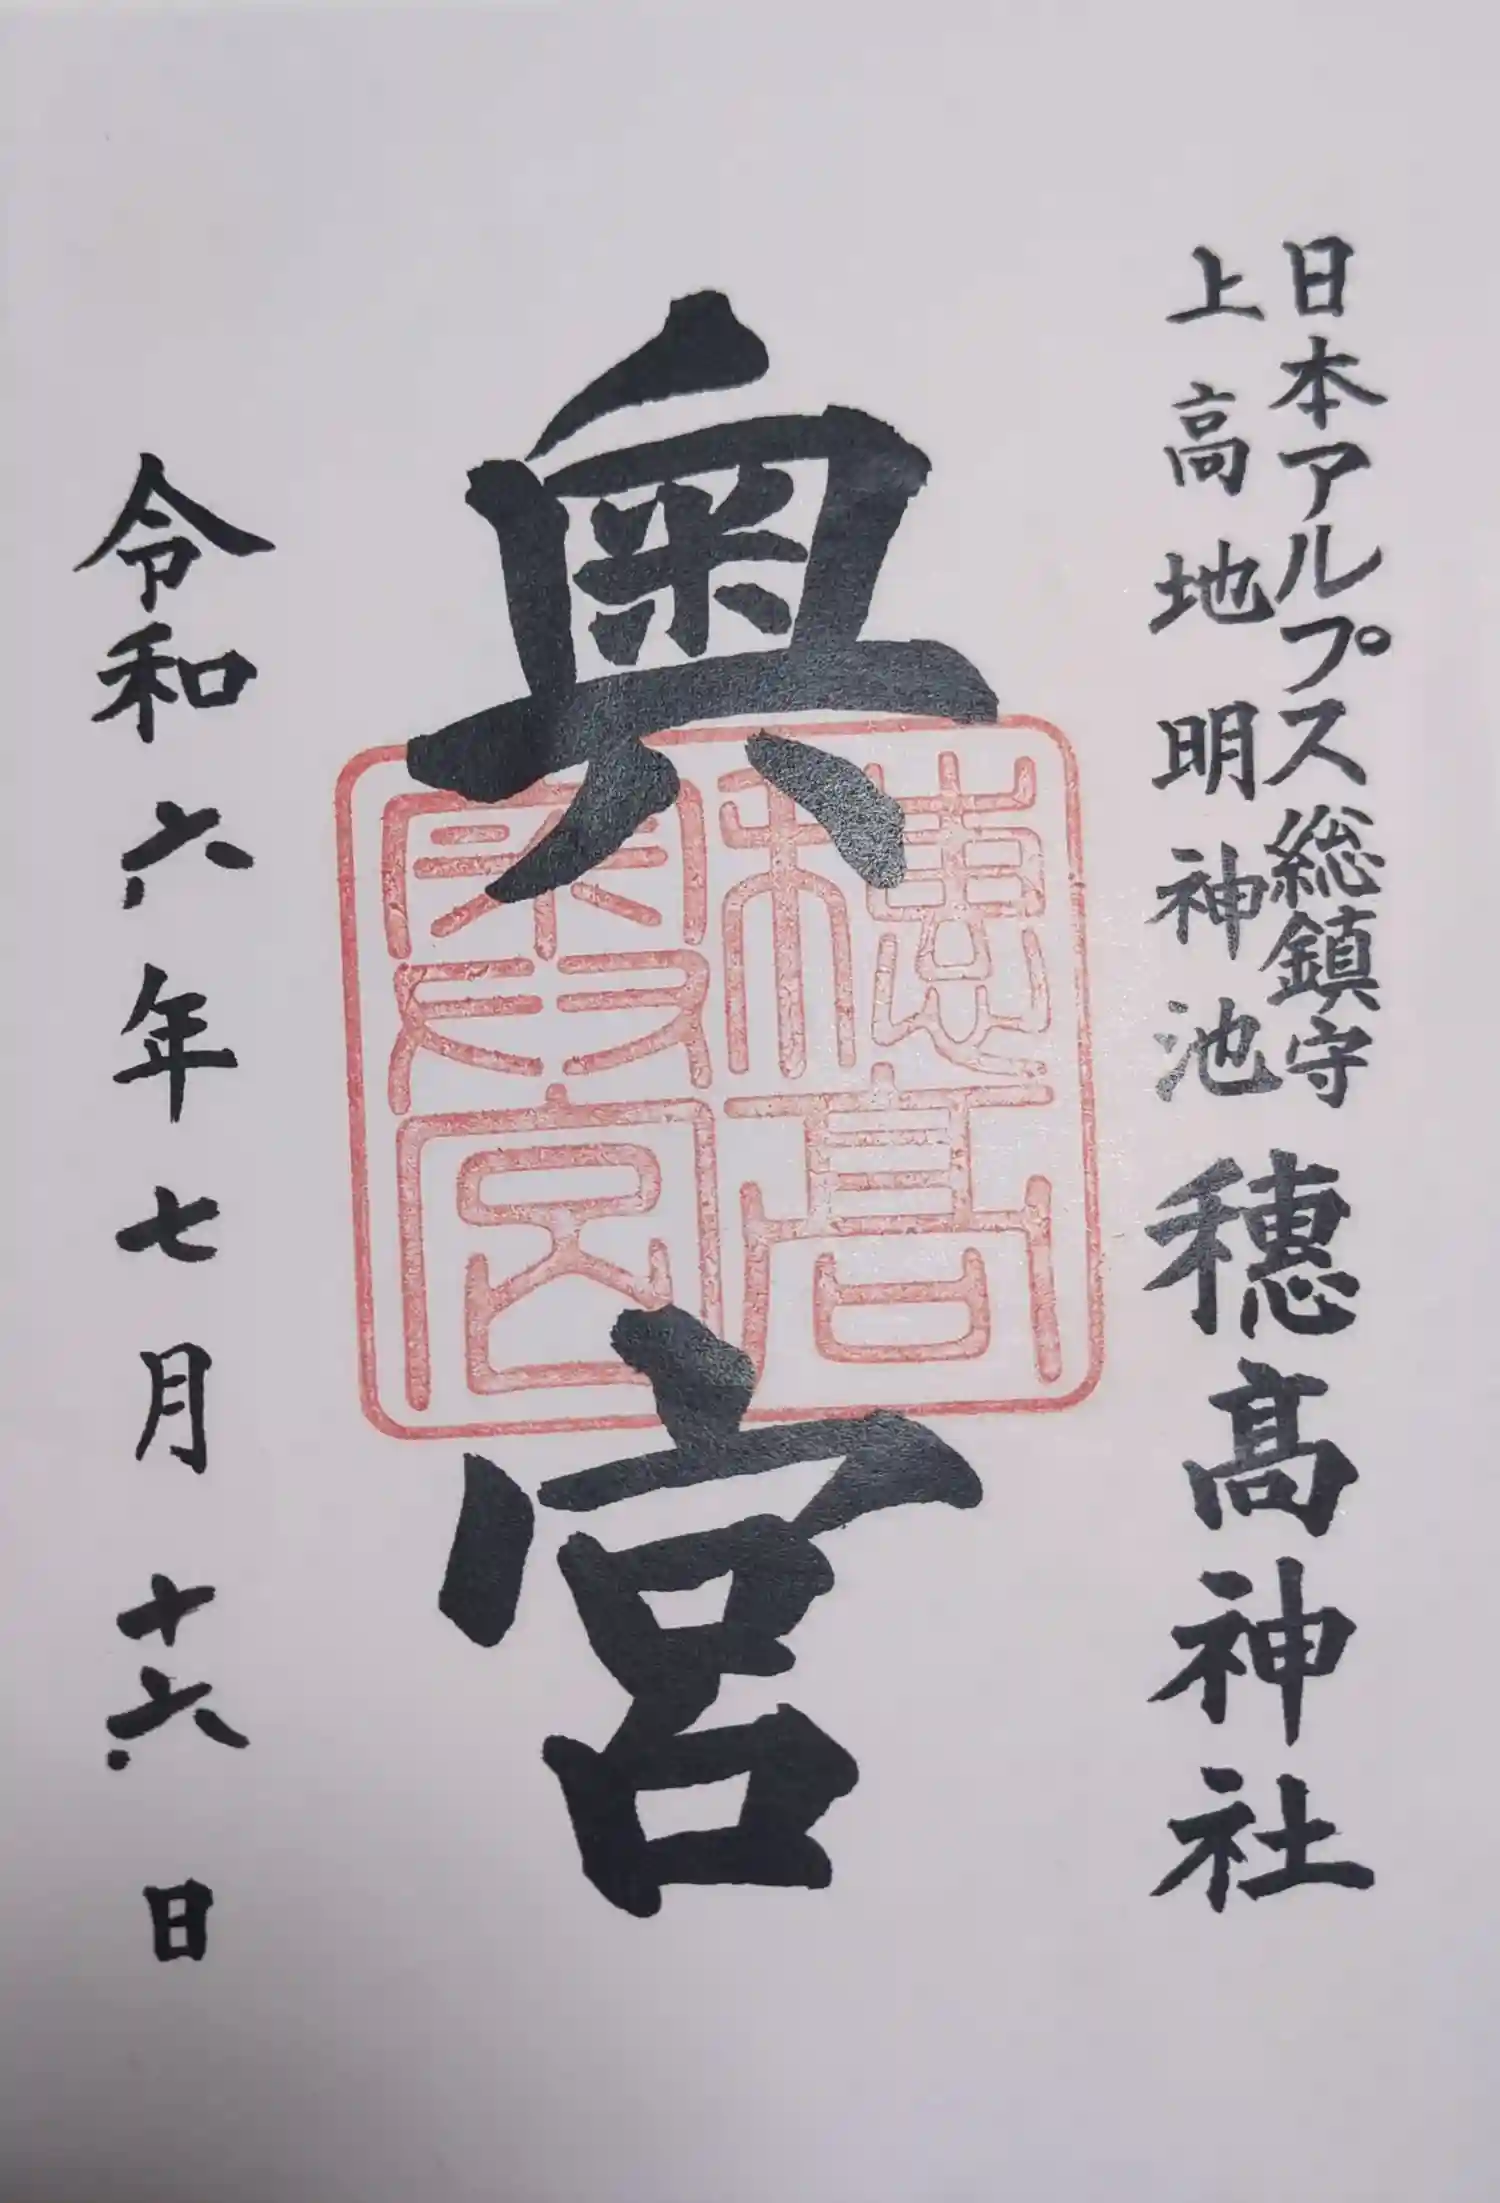 日本アルプス総鎮守
上高地明神池
穗髙神社
奥宮
穗髙
奥宮
令和六年七月十六日